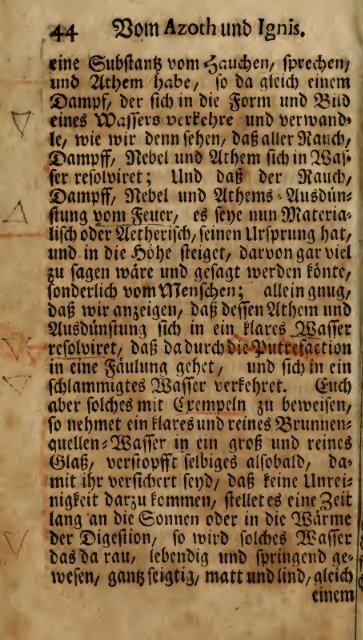 44 Vom Azoth und Ignis.
eine Substantz vom Hauchen, sprechen,
und Athem habe, so da gleich einem
Dampf, der sich in die Form und Bild
eines Wassers verkehre und verwand-
le, wie wir denn sehen, daß aller Rauch,
Dampff, Nebel und Athem sich in Was-
ser resolviret; Und daß der Rauch,
Dampff, Nebel und Athems-Ausdün-
stung vom Feuer, es seye nun Materia-
lisch oder Aetherisch, seinen Ursprung hat,
und in die Höhe steiget, darvon gar viel
zu sagen wäre und gesagt werden könte,
sonderlich vom Menschen; allein gnug,
daß wir anzeigen, daß dessen Athem und
Ausdünstung sich in ein klares Wasser
resolviret, daß da durch die Putrefaction
in eine Fäulung gehet, und sich in ein
schlammigtes Wasser verkehret. Euch
aber solches mit Exempeln zu beweisen,
so nehmet ein klares und reines Brunnen-
quellen-Wasser in ein groß und reines
Glaß, verstopfft selbiges alsobald, da-
mit ihr versichert seyd, daß keine Unrei-
nigkeit darzu kommen, stellet es eine Zeit
lang an die Sonnen oder in die Wärme
der Digestion, so wird solches Wasser
das da rau, lebendig und springend ge-
wesen, gantz feigtig, matt und lind, gleich
einem